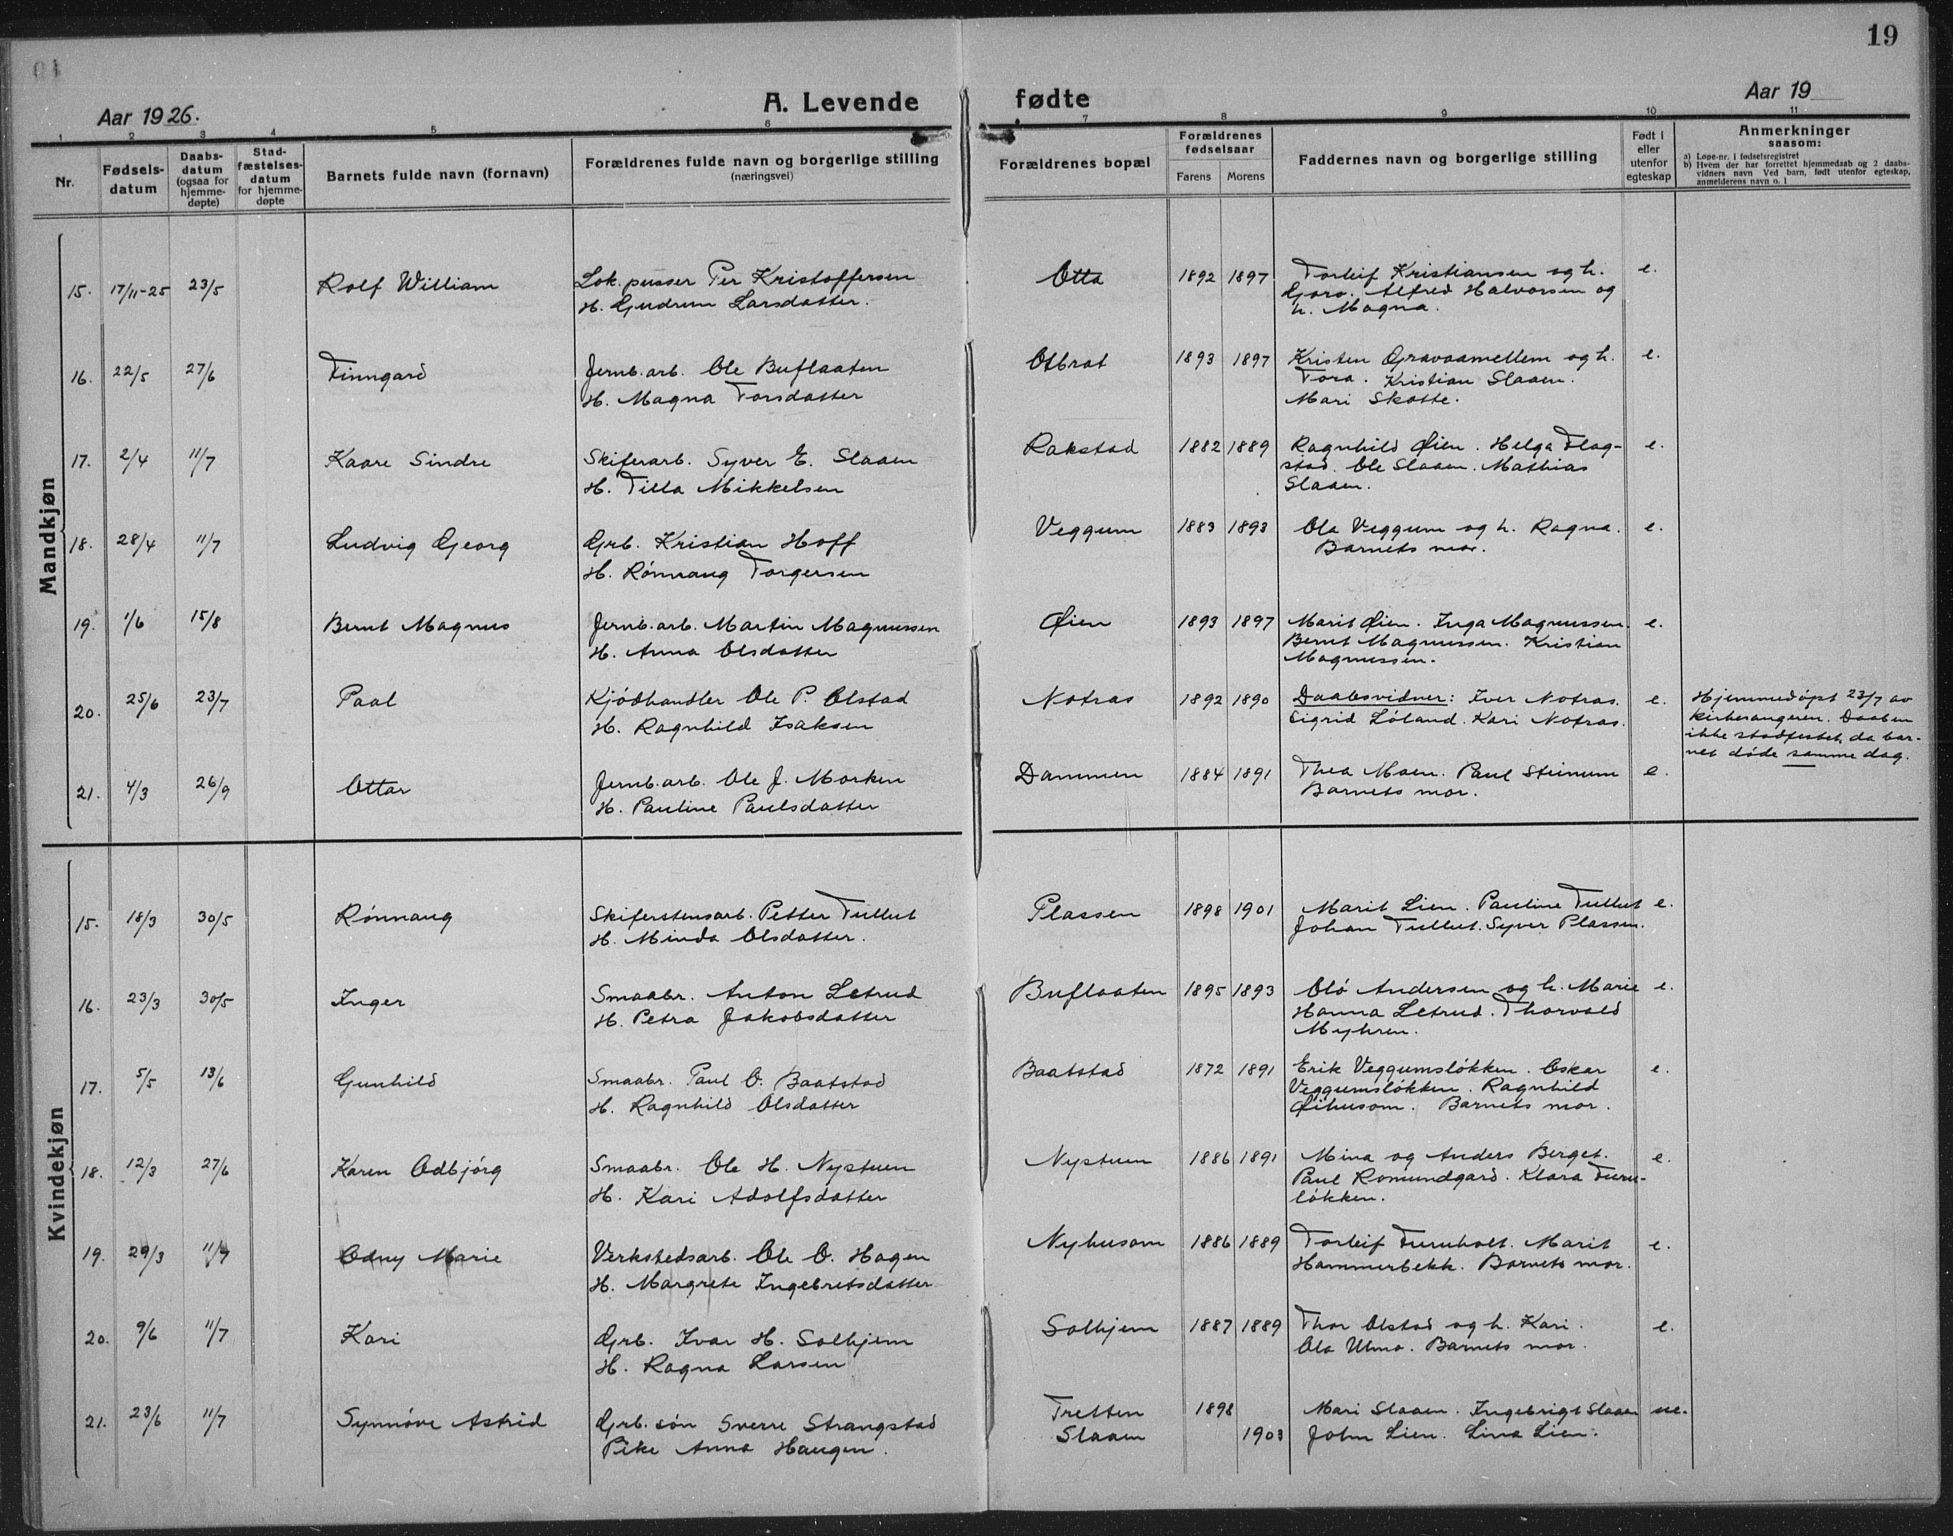 19
Aar 1926.
A. Levende fødte
Aar 19
1 2 3 4 5 6 7 8 9 10 11
Nr.
Fødsels-
datum
Daabs-
datum
(ogsaa for
hjemme-
døpte)
Stad-
fæstelses-
datum
for hjemme-
døpte
Barnets fulde navn (fornavn)
Forældrenes fulde navn og borgerlige stilling
(næringsvei)
Forældrenes bopæl
Forældrenes
fødselsaar
Farens Morens
Faddernes navn og borgerlige stilling
Født i
eller
utenfor
egteskap
Anmerkninger
saasom:
a) Løpe-nr. i fødselsregistret
b) Hvem der har forrettet hjemmedaab og 2 daabs-
vidners navn Ved barn, født utenfor egteskap,
anmelderens navn o. l
Mandkjøn
15. 17/11-25 23/5 Rolf William Lok. pusser Per Kristoffersen Otta 1892 1897 Torleif Kristiansen og h. e.
H. Gudrun Larsdatter. Goro. Alfred Halvorsen og
h. Magna.
16. 22/5 27/6 Finngard Jernb. arb. Ole Buflaaten Otbrat 1893 1897 Kristen Gravaamellem og h. e.
H. Magna Torsdatter Tora. Kristian Slaaen.
Mari Skotte.
17. 2/4 11/7 Kaare Sindre Skiferarb. Syver E. Slaaen Rakstad 1882 1889 Ragnhild Øien. Helga Flag- e.
H. Tilla Mikkelsen stad. Ole Slaaen. Mathias
Slaaen.
18. 28/4 11/7 Ludvig Georg Grb. Kristian Hoff Veggum 1883 1893 Ola Veggum og h. Ragna. e.
H. Rønnaug Torgersen Barnets mor.
19. 1/6 15/8 Bernt Magnus Jernb. arb. Martin Magnussen Øien 1893 1897 Marit Øien. Inga Magnussen. e.
H. Anna Olsdatter Bernt Magnussen. Kristian
Magnussen.
20. 25/6 23/7 Paal Kjødhandler Ole P. Olstad Notras 1892 1890 Daabsvidner: Iver Notras. e. Hjemmedøpt 23/7 av
H. Ragnhild Isaksen Sigrid Løland. Kari Notras. kirkesangeren. Daaben
ikke stadfestet, da bar-
net døde samme dag.
21. 4/3 26/9 Ottar Jernb. arb. Ole J. Morken Dammen 1884 1891 Thea Moen. Paul Steinum e.
H. Pauline Paulsdatter Barnets mor.
Kvindekjøn
15. 18/3 30/5 Rønnaug Skiferstensarb. Petter Tullut Plassen 1898 1901 Marit Lien. Pauline Tullut e.
H. Minda Olsdatter. Johan Tullut. Syver Plassen.
16. 23/3 30/5 Inger Smaabr. Anton Letrud Buflaaten 1895 1893 Olø Andersen og h. Marie e.
H. Petra Jakobsdatter Hanna Letrud. Thorvald
Myhren.
17. 5/5 13/6 Gunhild Smaabr. Paul O. Baatstad Baatstad 1872 1891 Erik Veggumsløkken. Oskar e.
H. Ragnhild Olsdatter Veggumsløkken. Ragnhild
Øihusom. Barnets mor.
18. 12/3 27/6 Karen Odbjørg Smaabr. Ole H. Nystuen Nystuen 1886 1891 Mina og Anders Berget. e.
H. Kari Adolfsdatter Paul Romundgard. Klara Furu-
løkken.
19. 29/3 11/7 Odny Marie Verkstedsarb. Ole O. Hagen Nyhusom 1886 1889 Torleif Furuholt. Marit e.
H. Margrete Ingebretsdatter Hammerbekk. Barnets mor.
20. 9/6 11/7 Kari Grb. Ivar H. Solhjem Solhjem 1887 1889 Thor Olstad og h. Kari. e.
H. Ragna Larsen Ola Ulmo. Barnets mor.
21. 23/6 11/7 Synnøve Astrid Grb. søn Sverre Strangstad Tretten 1898 Mari Slaaen. Ingebrigt Slaaen ue.
Pike Anna Haugen. Slaaen 1903 John Lien. Lina Lien.